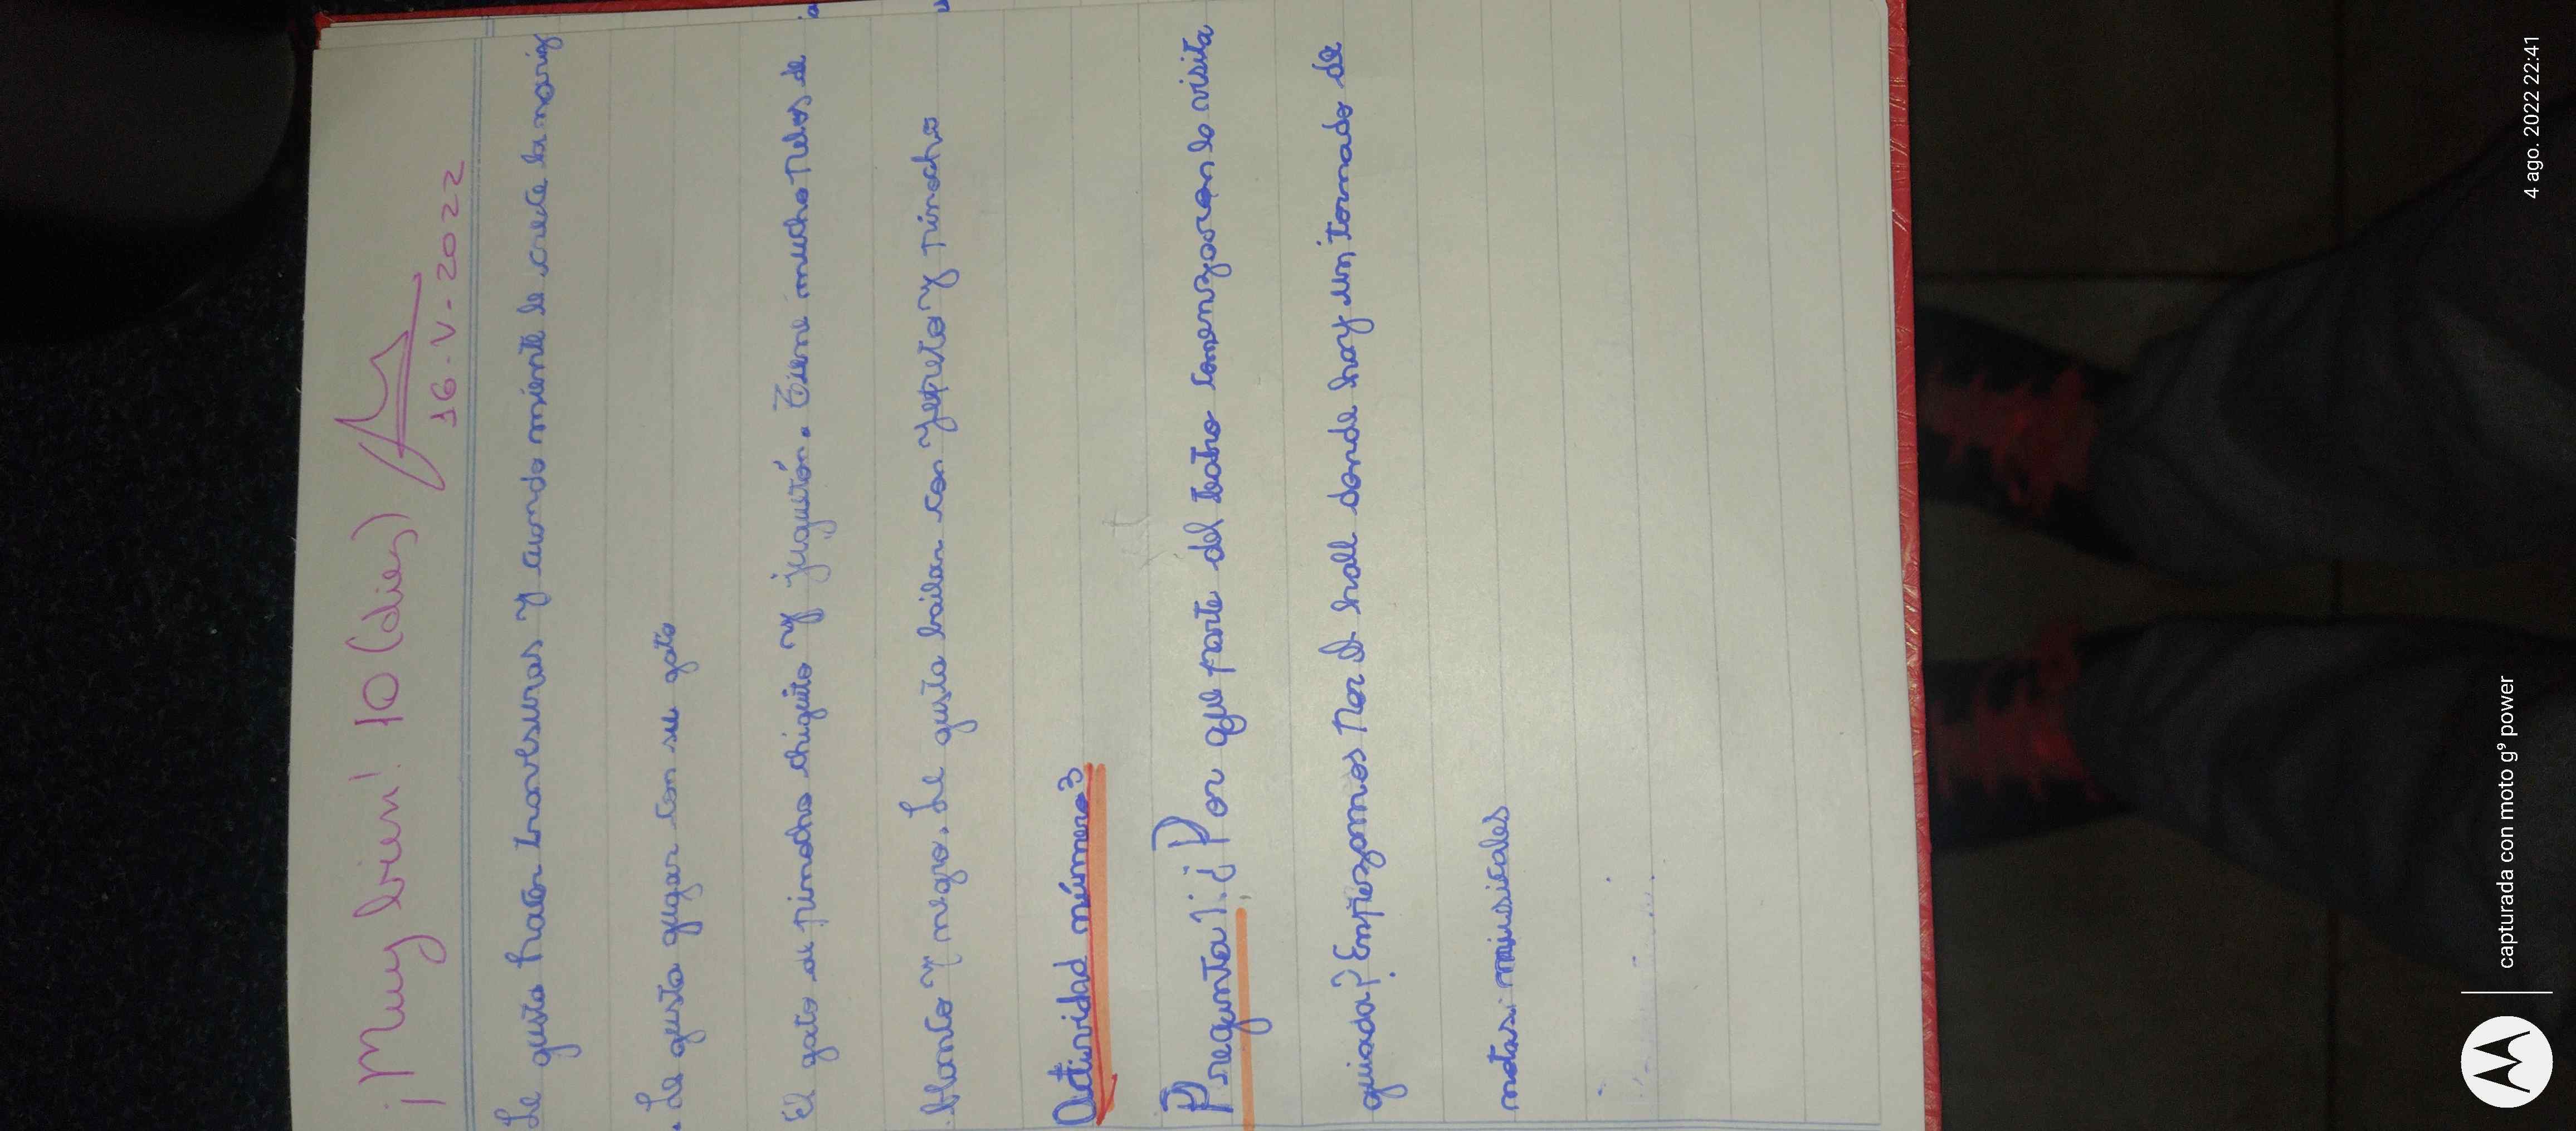 ¡Muy bien! 10 (diez)
16-V-2022
Le gusta hacer travesuras y cuando miente le crece la nariz
. Le gusta gugar con su gato
El gato de pinocho chiquito y juguetón. Tiene mucho Pelos de
blanco y negro. Le gusta bailar con Yepeto y pinocho
Actividad número 3
Pregunta 1: ¿Por que parte del teatro comenzaron la visita
guiada? Empezamos Por el hall donde hay un tornado de
notas musicales
4 ago. 2022 22:41
capturada con moto g⁹ power